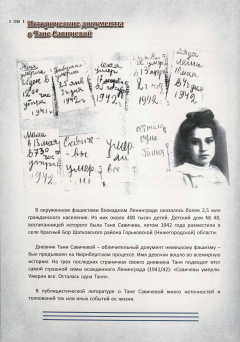 Исторические документы
о Тане Савичевой
Женя
умерла
28 дек
в
12.00 час
утра
1941 г.
Бабушка
умерла
25 янв
3 ч. дня
1942 г.
Лека
умер
17 марта
в 5 час утра
1942 г.
Дядя
Вася
умер
в 13 апр
2 ч ночь
1942 г.
Дядя
Леша
10 мая
в 4 ч дня
1942
Мама
в 13 мая
в 7.30
час
утра
1942 г.
Савичевы
умерли
умерли
все
осталась
одна
Таня
В окруженном фашистами блокадном Ленинграде оказалось более 2,5 млн
гражданского населения. Из них около 400 тысяч детей. Детский дом № 48,
воспитанницей которого была Таня Савичева, летом 1942 года разместили в
селе Красный Бор Шатковского района Горьковской (Нижегородской) области.
Дневник Тани Савичевой – обличительный документ немецкому фашизму –
был предъявлен на Нюрнбергском процессе. Имя девочки вошло во всемирную
историю. На трех последних страничках своего дневника Таня подводит итог
самой страшной зимы осажденного Ленинграда (1941/42): «Савичевы умерли.
Умерли все. Осталась одна Таня».
В публицистической литературе о Тане Савичевой много неточностей и
толкований тех или иных событий ее жизни.